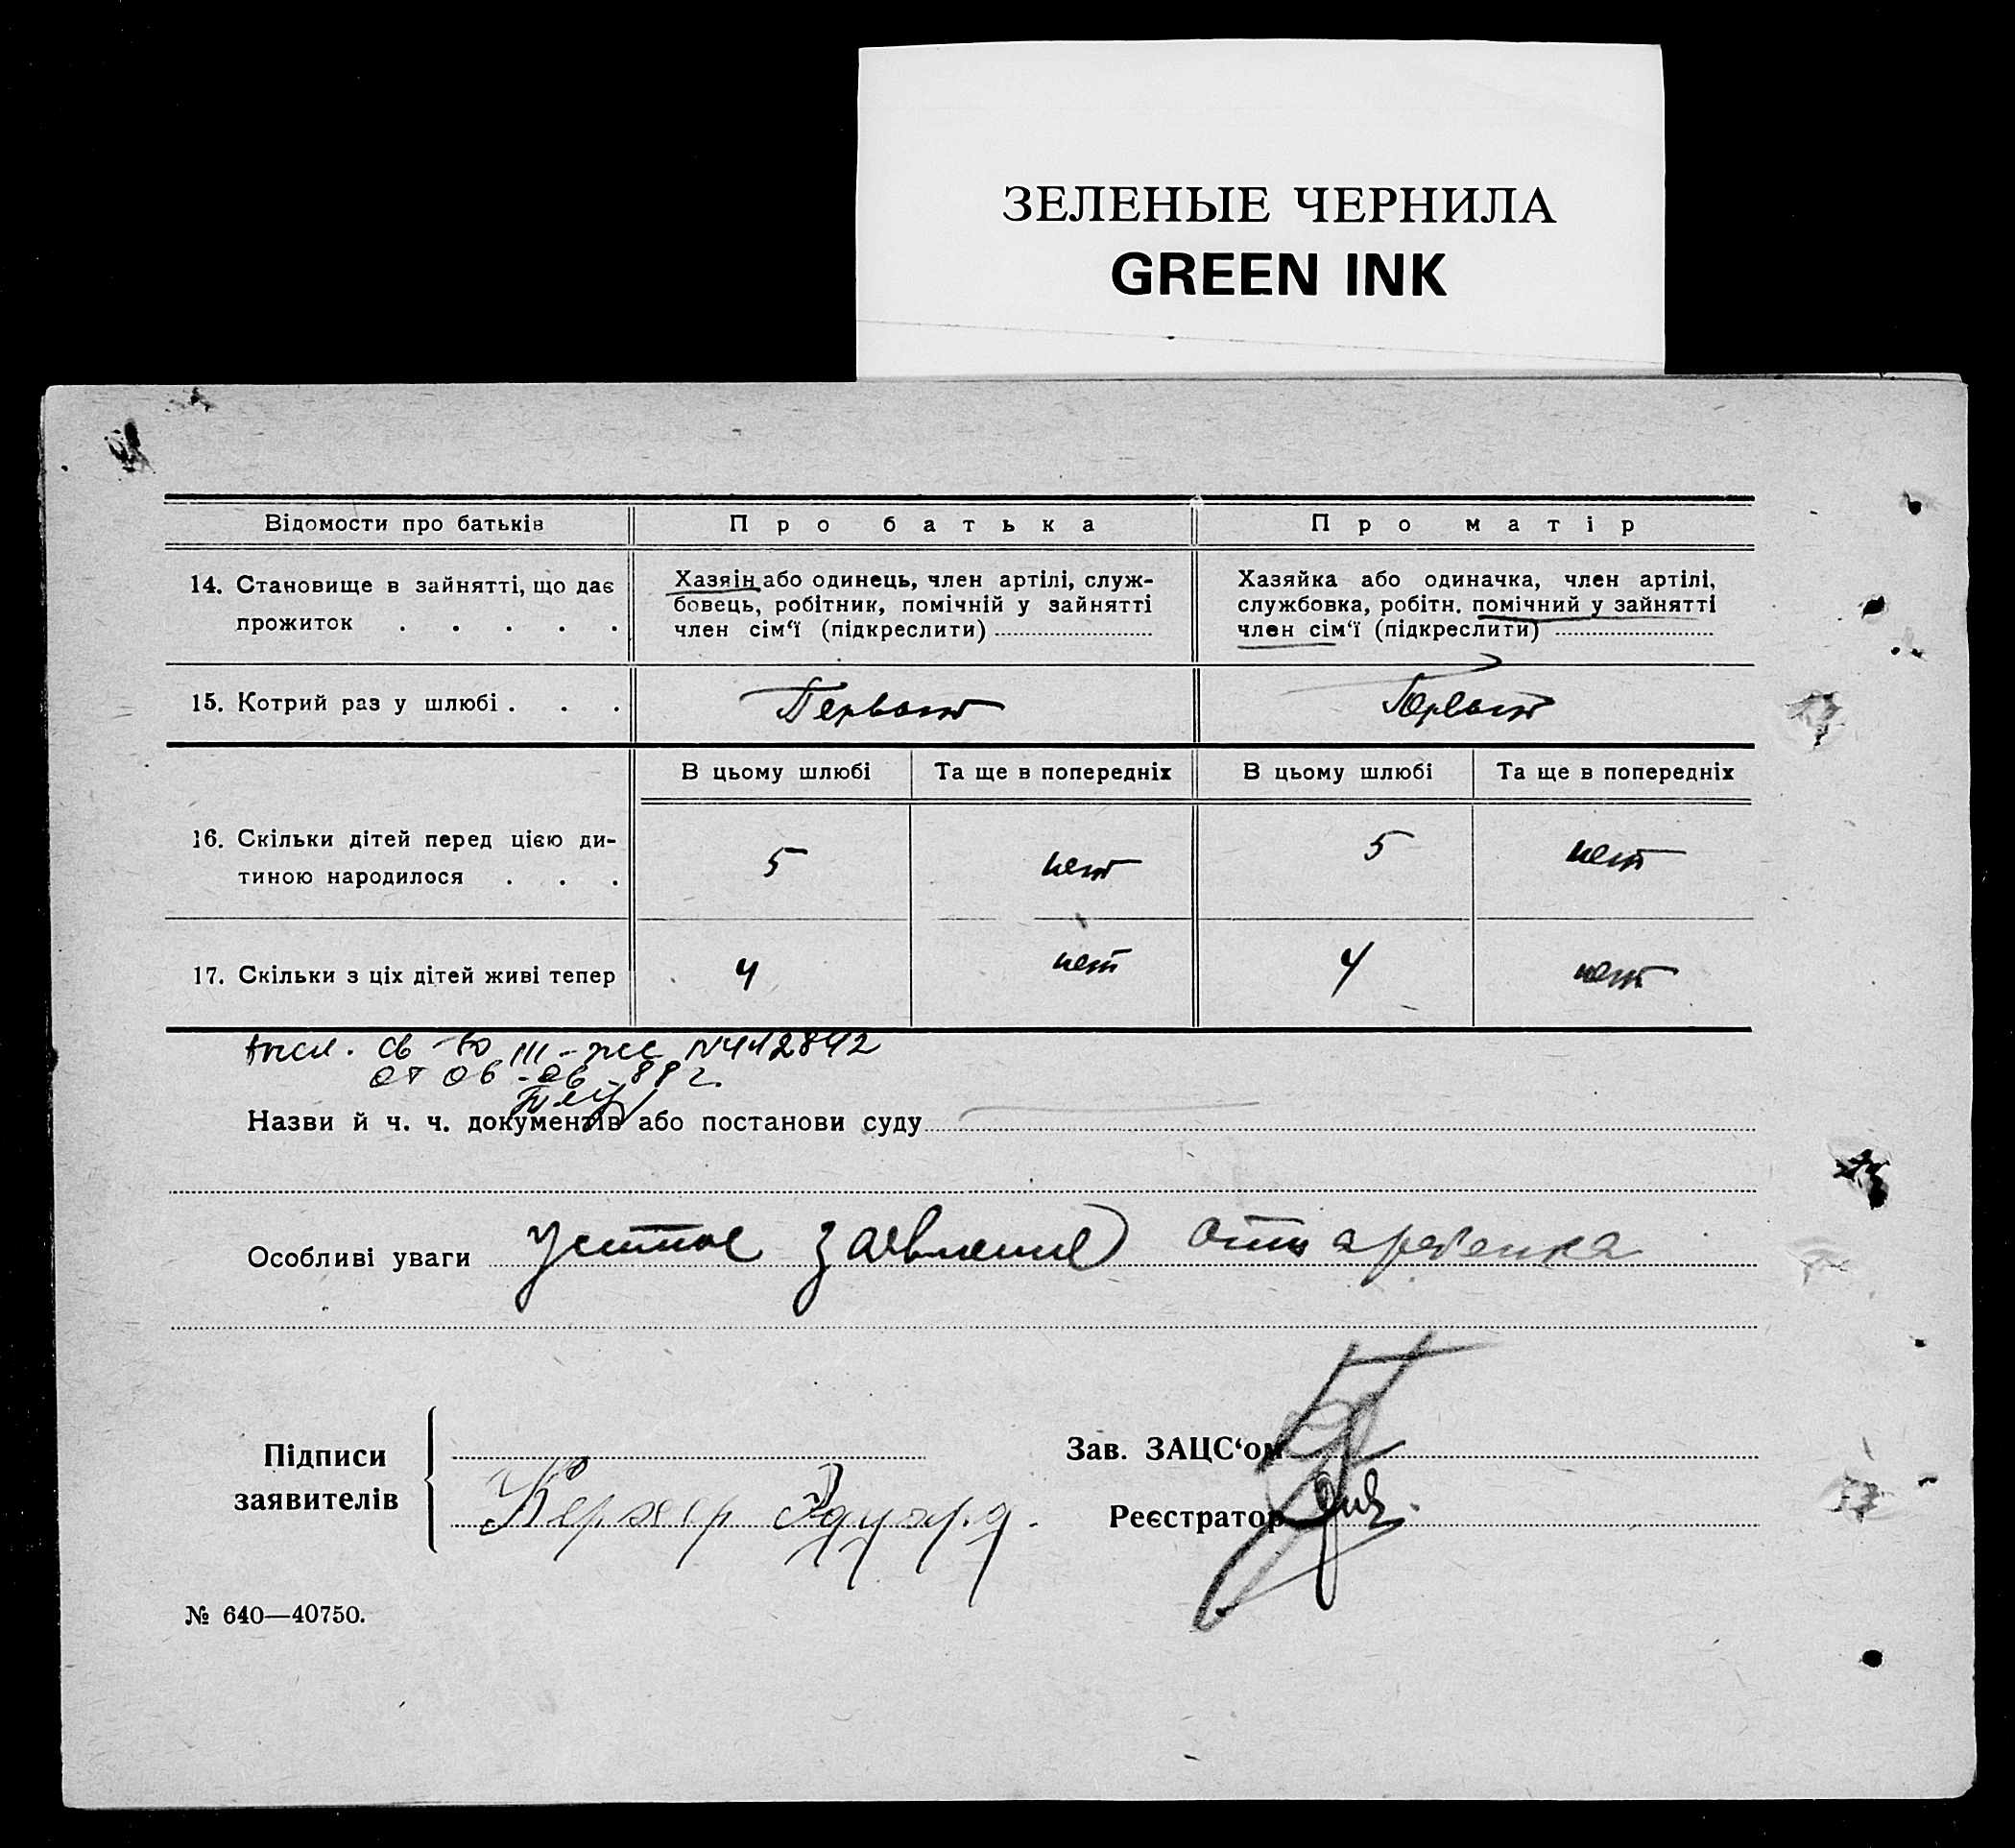 ЗЕЛЕНЫЕ ЧЕРНИЛА
GREEN INK
Відомости про батьків
Про батька
Про матір
14. Становище в зайнятті, що дає
прожиток . . . . .
Хазяін або одинець, член артілі, служ-
бовець, робітник, помічній у зайнятті
член сім‘ї (підкреслити)
Хазяйка або одиначка, член артілі,
службовка, робітн. помічний у зайнятті
член сім‘ї (підкреслити)
15. Котрий раз у шлюбі . . .
Первый
Первый
В цьому шлюбі
Та ще в попередніх
В цьому шлюбі
Та ще в попередніх
16. Скільки дітей перед цією ди-
тиною народилося . . .
5
нет
5
нет
17. Скільки з ціх дітей живі тепер
4
нет
4
нет
св-во III-
от 06-06-88 г.
Назви й ч. ч. документів або постанови суду
Особливі уваги Устное заявление отца ребенка
Підписи
заявителів
Керхер Эдуард.
Зав. ЗАЦС‘ом
Реєстратор
№ 640—40750.